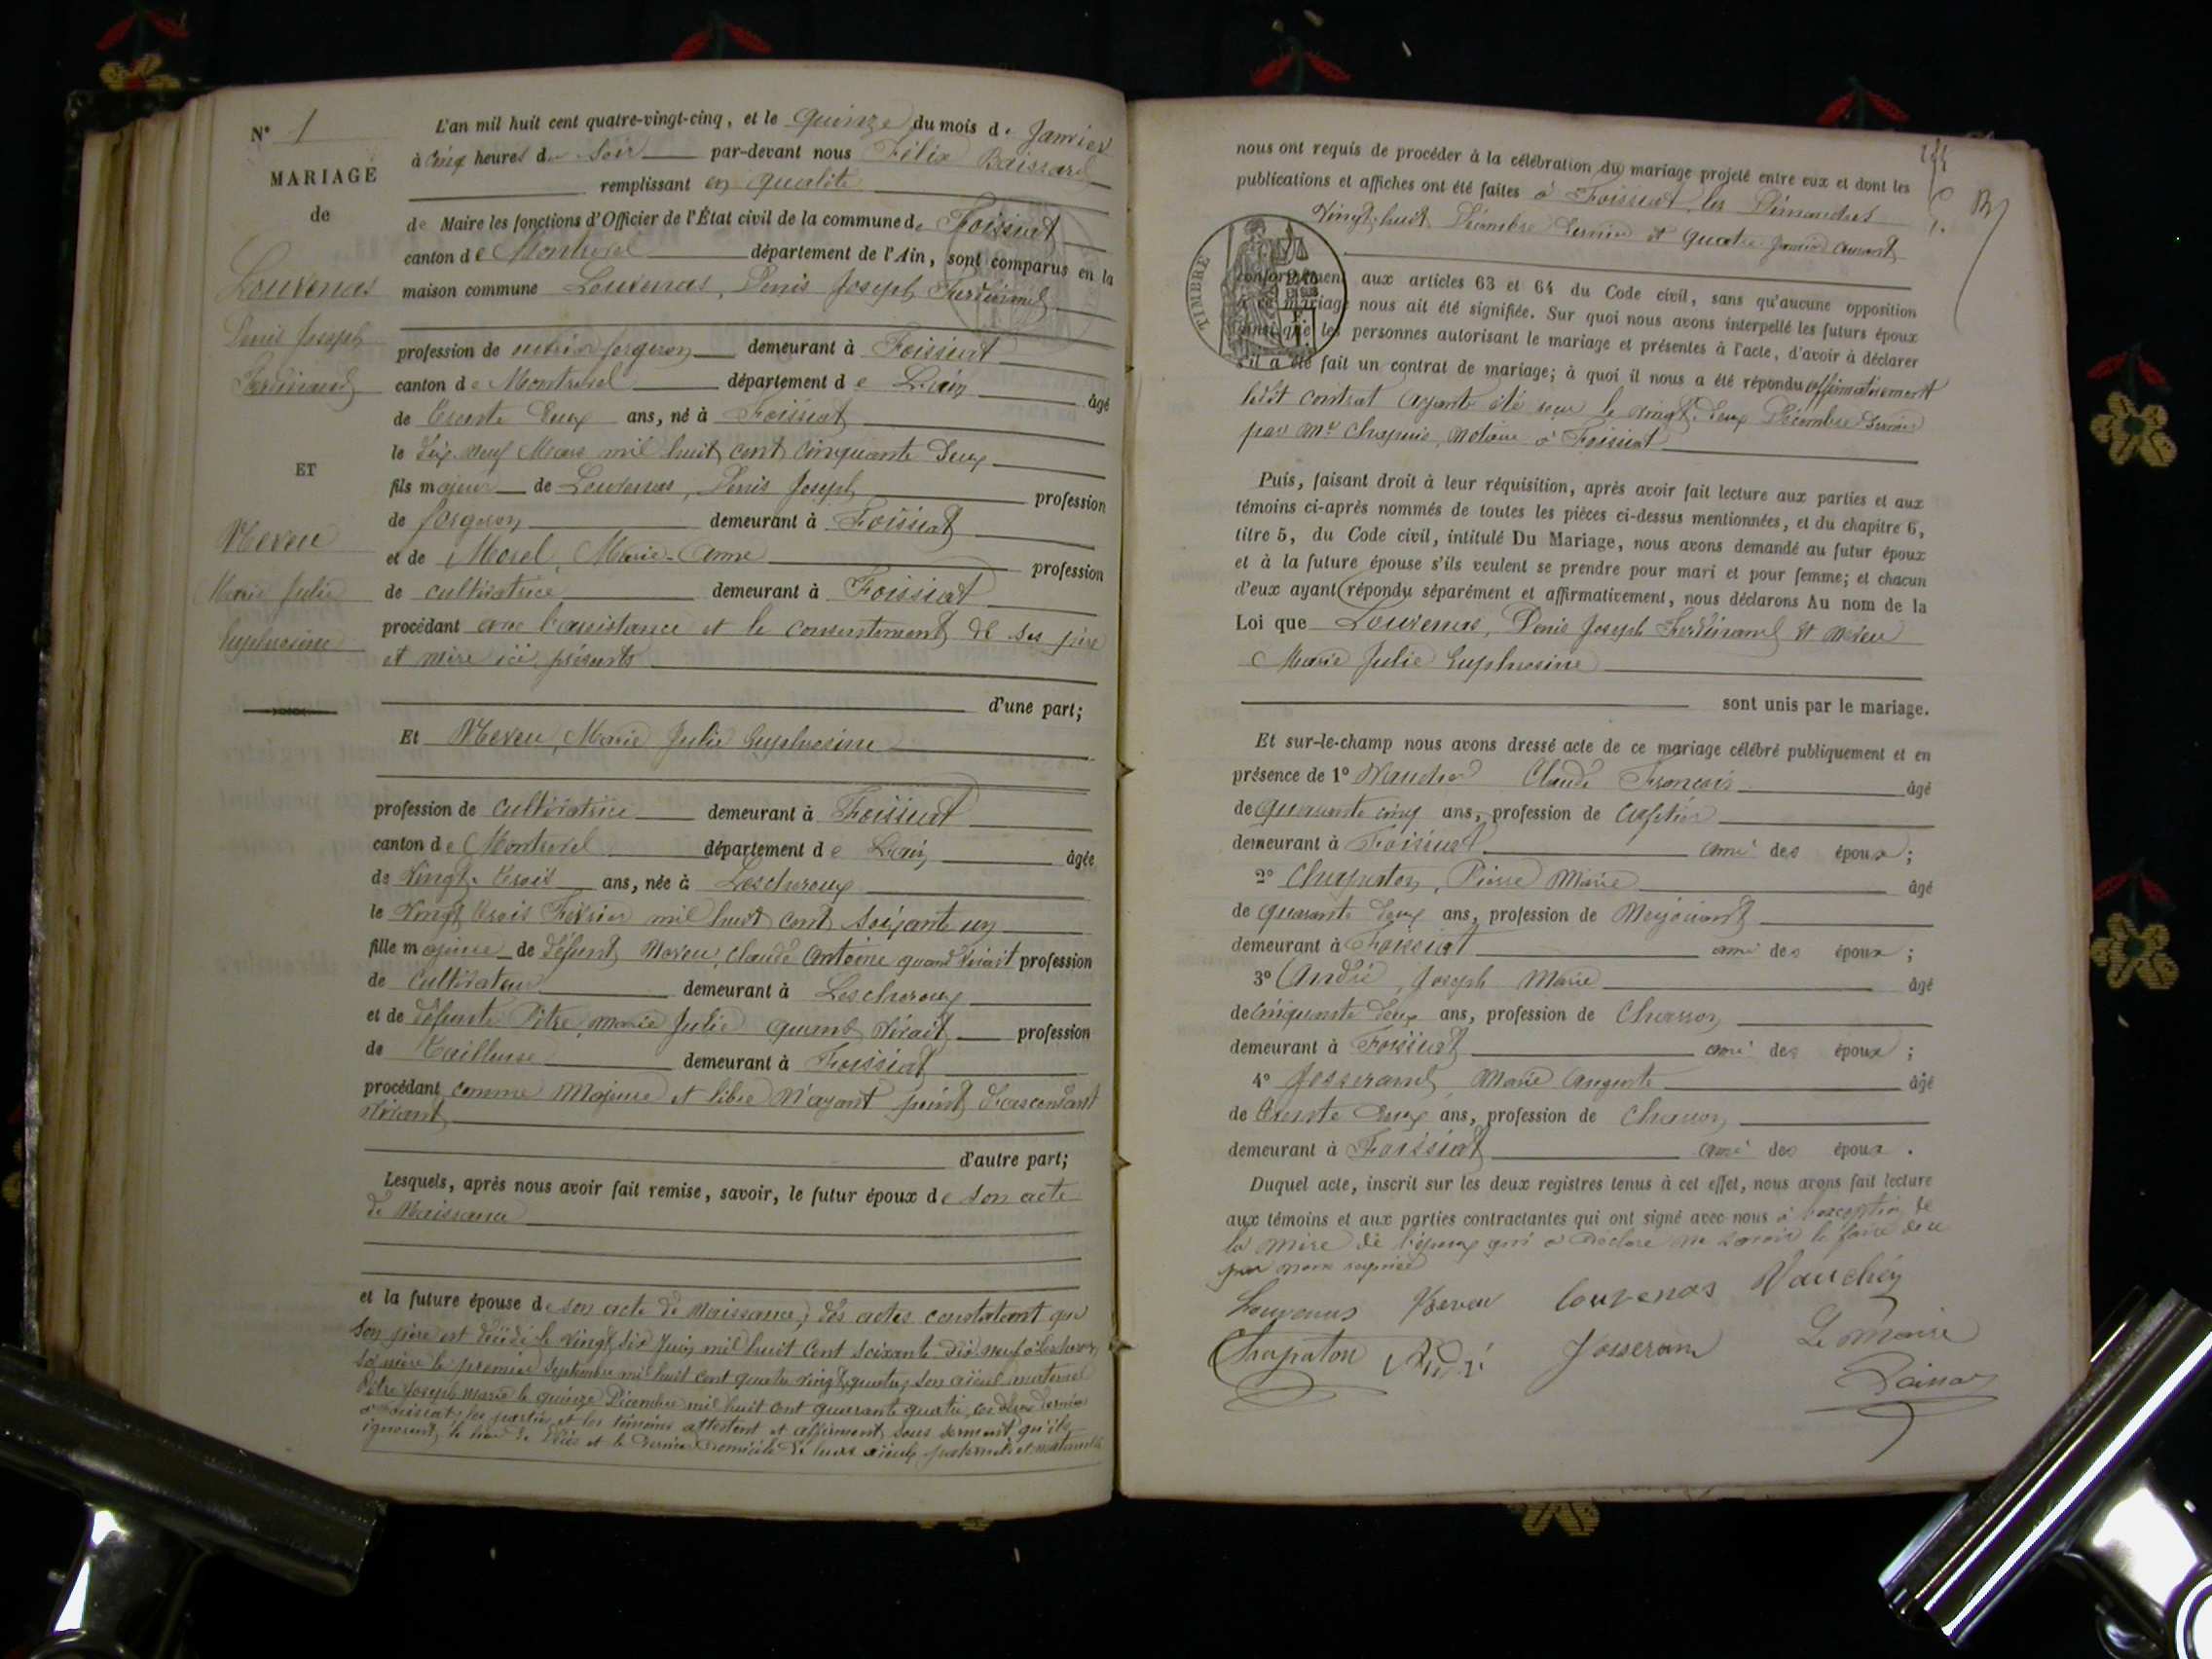 N° 1
MARIAGE
de
Louvenas
Denis Joseph
Ferdinand
ET
Neveu
Marie Julie
Euphrosine
L'an mil huit cent quatre-vingt-cinq, et le quinze du mois de Janvier
à cinq heures du soir par-devant nous Félix
remplissant en qualité
de Maire les fonctions d'Officier de l'État civil de la commune de Foissiat
canton de Montrevel département de l'Ain, sont comparus en la
maison commune Louvenas, Denis Joseph Ferdinand
profession de ouvrier forgeron demeurant à Foissiat
canton de Montrevel département de L'ain âgé
de trente deux ans, né à Foissiat
le dix neuf Mars mil huit cent cinquante deux
fils majeur de Louvenas, Denis Joseph profession
de forgeron demeurant à Foissiat
et de Morel, Marie-Anne profession
de cultivatrice demeurant à Foissiat
procédant avec l'assistance et le consentement de ses père
et mère ici présents
d'une part;
Et Neveu, Marie Julie Euphrosine
profession de cultivatrice demeurant à Foissiat
canton de Montrevel département de L'ain âgée
de vingt-trois ans, née à Lescheroux
le vingt trois Février mil huit cent soixante un
fille majeure de défunt Neveu, Claude Antoine quand vivait profession
de cultivateur demeurant à Lescheroux
et de défunte Pitre, Marie Julie quand vivait profession
de tailleuse demeurant à Foissiat
procédant comme majeure et libre n'ayant point d'ascendant
vivant
d'autre part;
Lesquels, après nous avoir fait remise, savoir, le futur époux de son acte
de Naissance
et la future épouse de son acte de Naissance, des actes constatant que
son père est décédé le vingt six Juin mil huit cent soixante dix neuf à Lescheroux
sa mère le premier Septembre mil huit cent quatre vingt quatre, son aïeul maternel
Pitre Joseph Marie le quinze Décembre mil huit cent quarante quatre, ces deux derniers
à Foissiat; les parties et les témoins attestent et affirment sous serment qu'ils
ignorent le lieu de décès et le dernier domicile de leurs aïeuls paternels et maternels
nous ont requis de procéder à la célébration du mariage projeté entre eux et dont les
publications et affiches ont été faites à Foissiat les Dimanches
vingt-huit Décembre dernier et quatre Janvier courant
TIMBRE
conformément aux articles 63 et 64 du Code civil, sans qu'aucune opposition
à ce mariage nous ait été signifiée. Sur quoi nous avons interpellé les futurs époux
ainsi que les personnes autorisant le mariage et présentes à l'acte, d'avoir à déclarer
s'il a été fait un contrat de mariage; à quoi il nous a été répondu affirmativement
ledit contrat ayant été reçu le vingt-deux Décembre dernier
par Me Chapuis, Notaire à Foissiat
Puis, faisant droit à leur réquisition, après avoir fait lecture aux parties et aux
témoins ci-après nommés de toutes les pièces ci-dessus mentionnées, et du chapitre 6,
titre 5, du Code civil, intitulé Du Mariage, nous avons demandé au futur époux
et à la future épouse s'ils veulent se prendre pour mari et pour femme; et chacun
d'eux ayant répondu séparément et affirmativement, nous déclarons Au nom de la
Loi que Louvenas, Denis Joseph Ferdinand et Neveu
Marie Julie Euphrosine
sont unis par le mariage.
Et sur-le-champ nous avons dressé acte de ce mariage célébré publiquement et en
présence de 1° Claude François âgé
de quarante cinq ans, profession de
demeurant à Foissiat ami des époux;
2° Chapaton, Pierre Marie âgé
de quarante deux ans, profession de Négociant
demeurant à Foissiat ami des époux;
3° André, Joseph Marie âgé
de cinquante deux ans, profession de Charron
demeurant à Foissiat ami des époux;
4° Josserand, Marie Auguste âgé
de trente deux ans, profession de Charron
demeurant à Foissiat ami des époux.
Duquel acte, inscrit sur les deux registres tenus à cet effet, nous avons fait lecture
aux témoins et aux parties contractantes qui ont signé avec nous à l'exception de
la mère de l'époux qui a déclaré ne savoir le faire de ce
par nous requise
Louvenas Neveu Louvenas Vauchey
Chapaton André Josseran Le Maire